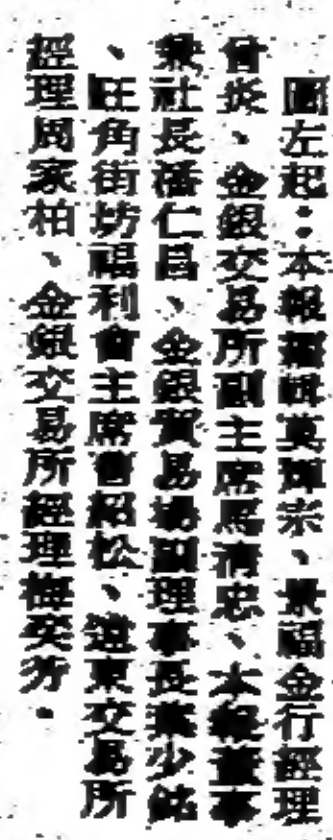 圖左起：本報編輯莫輝宗、景福金行經理
曾炎、金銀交易所副主席馬清忠、本報董事
兼社長潘仁昌、金銀貿易場副理事長葉少銘
、旺角街坊福利會主席曹紹松、遠東交易所
經理周家柏、金銀交易所經理梅奕芳。